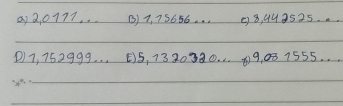 a) 2,0111... B) 1,75656... c) 3,442525...
D) 1,152999... E) 5,1320320... f) 9,081555...